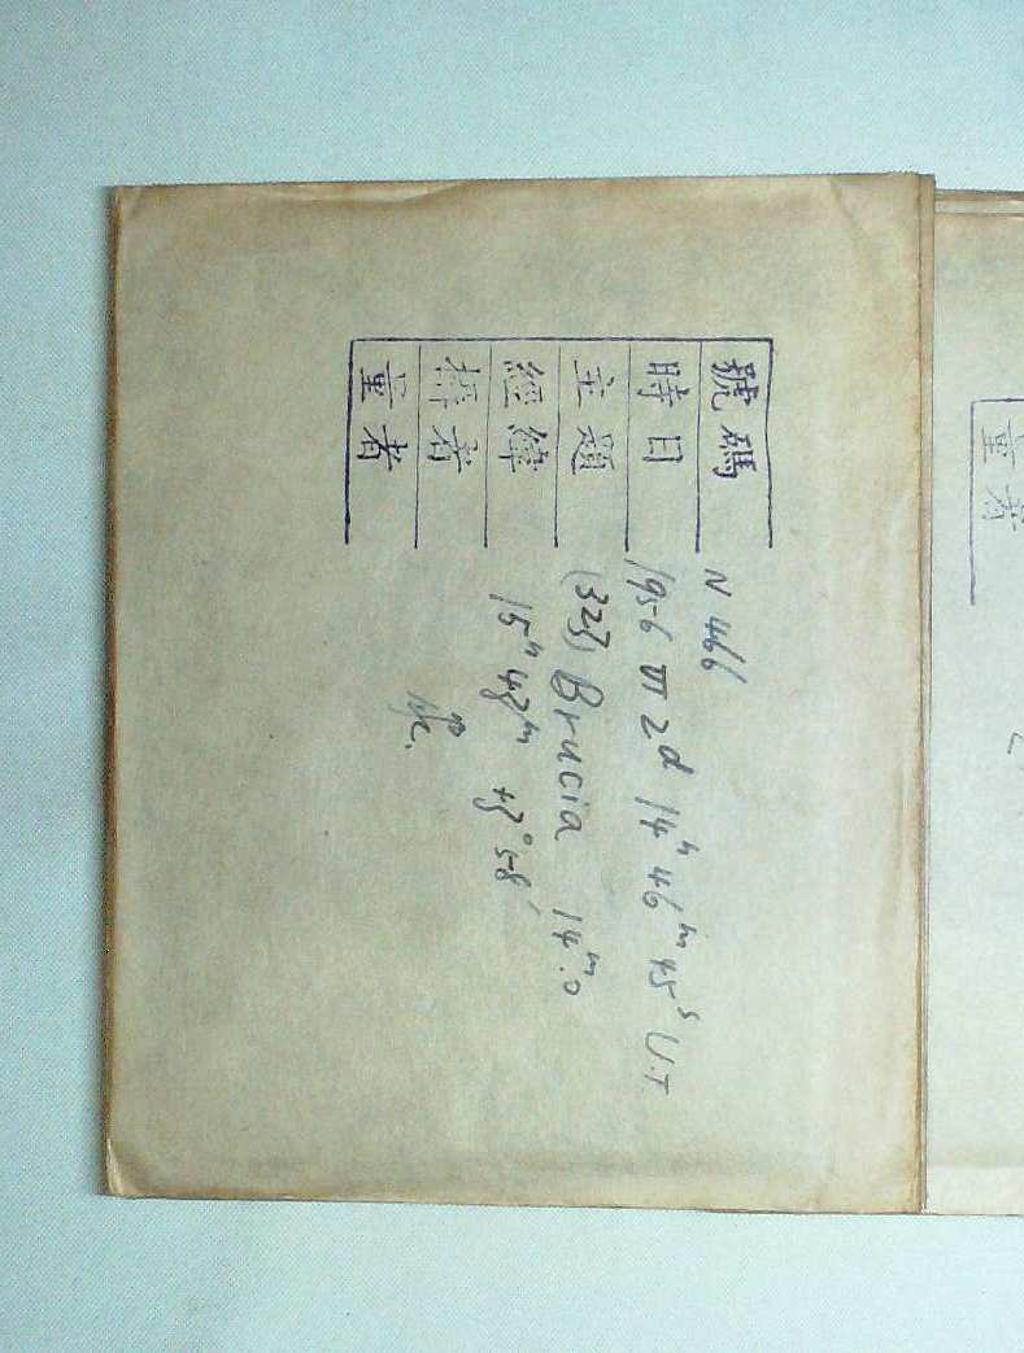 號碼 N 466
時日 1956 VI 2d 14h 46m 45s U.T
主題 (323) Brucia 14m.0
經緯 15h 48m +3° 58′
攝者
量者
量者